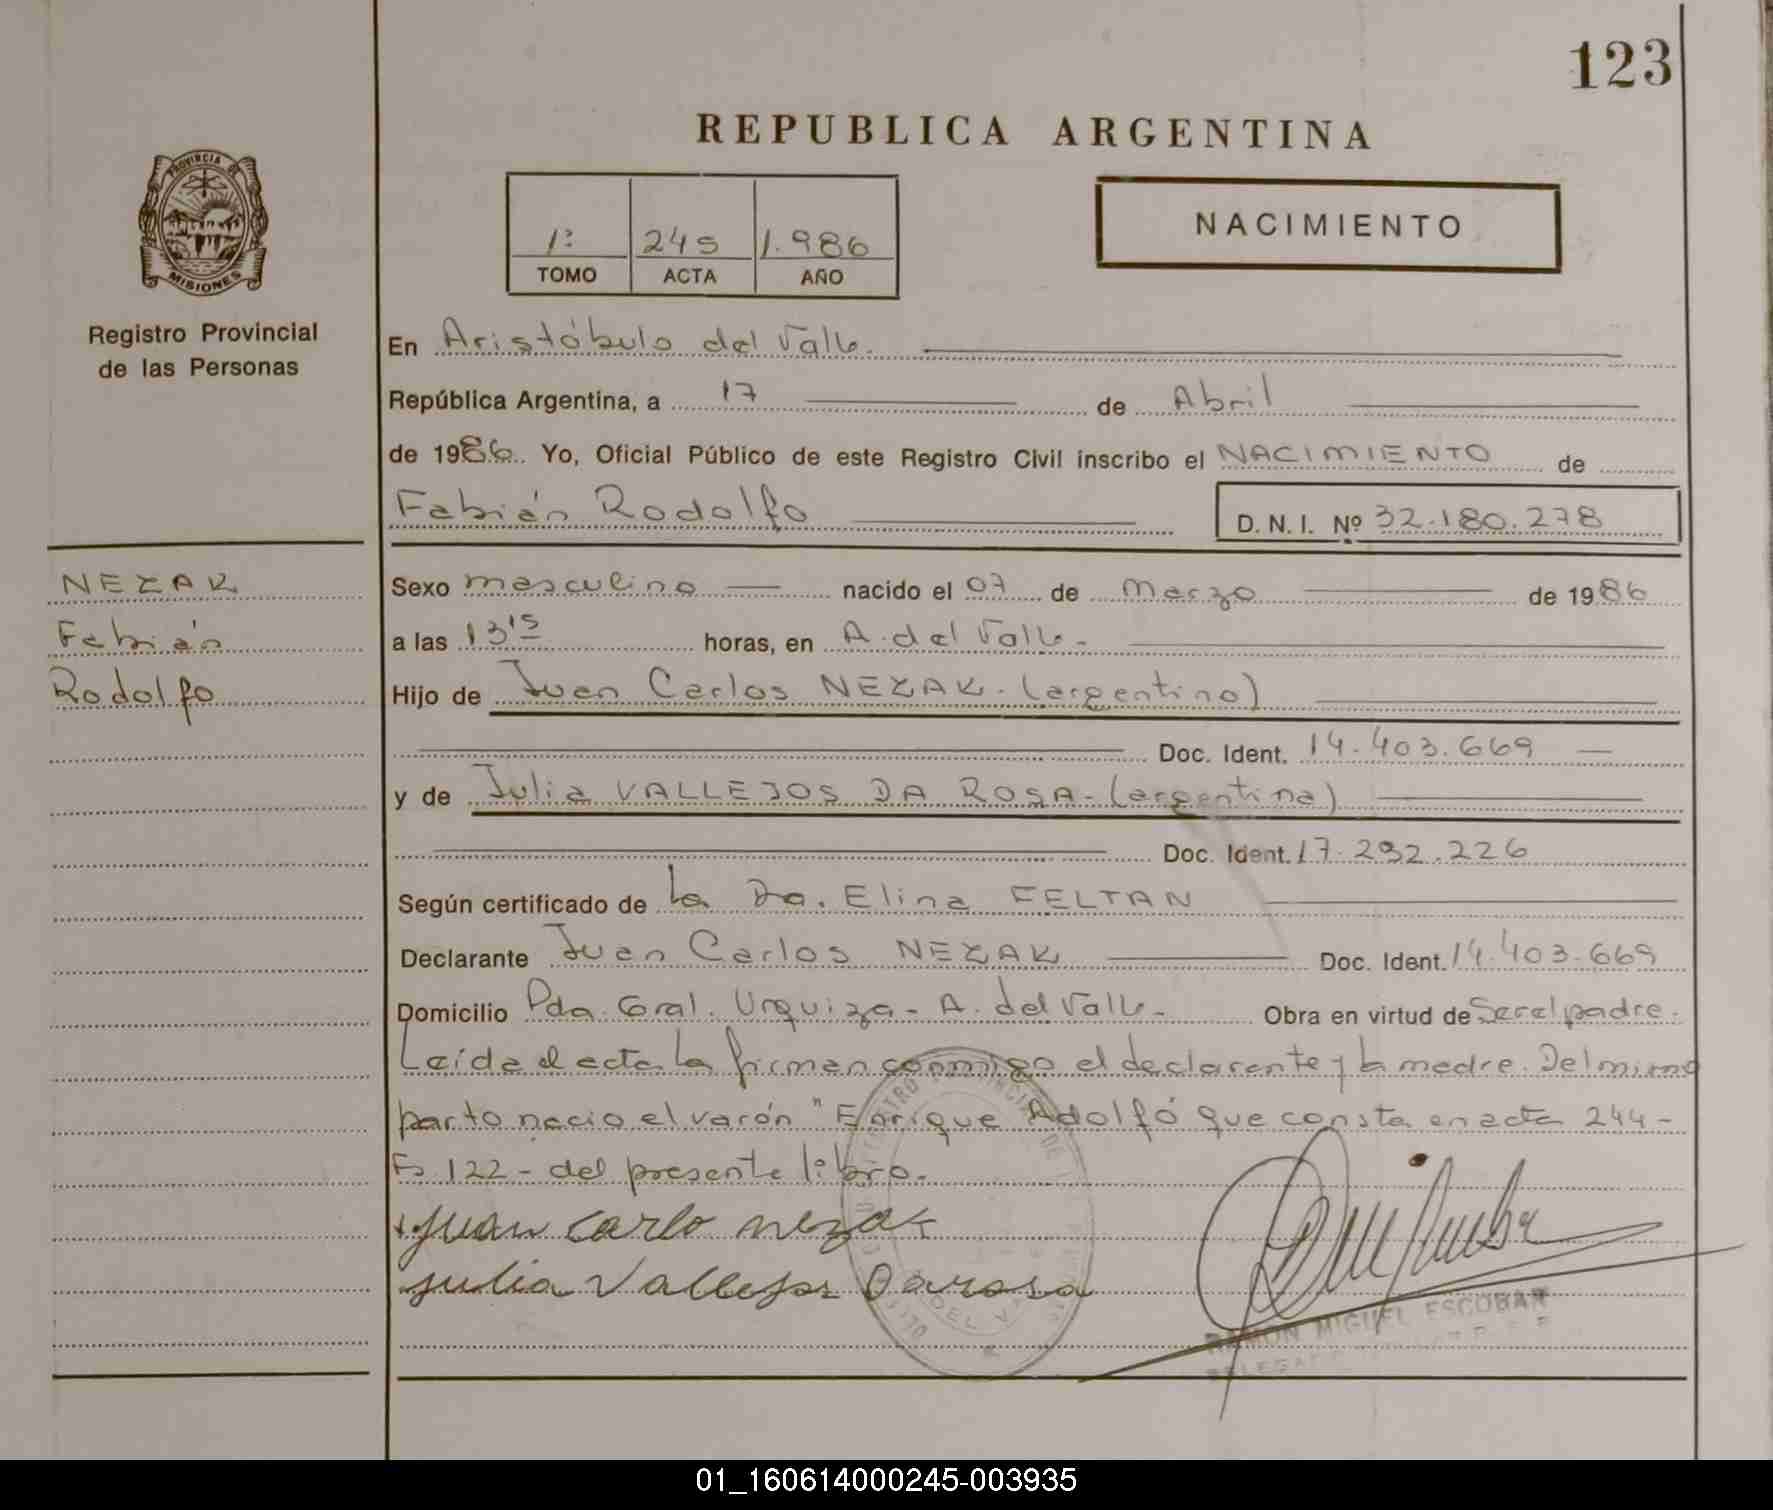 123
REPUBLICA ARGENTINA
PROVINCIA DE
MISIONES
Registro Provincial
de las Personas
1º 245 1.986
TOMO ACTA AÑO
NACIMIENTO
En Aristóbulo del Valle.
República Argentina, a 17 de Abril
de 1986. Yo, Oficial Público de este Registro Civil inscribo el NACIMIENTO de
Fabián Rodolfo D. N. I. Nº 32.180.278
NEZAK
Fabián
Rodolfo
Sexo masculino nacido el 07 de Marzo de 1986
a las 13 15 horas, en A. del Valle.
Hijo de Juan Carlos NEZAK. (argentino)
Doc. Ident. 14.403.669
y de Julia VALLEJOS DA ROSA- (argentina)
Doc. Ident. 17.292.226
Según certificado de la Dra. Elina FELTAN
Declarante Juan Carlos NEZAK Doc. Ident. 14.403.669
Domicilio Pda. Gral. Urquiza - A. del Valle - Obra en virtud de Ser el padre.
Leída el acta la firman conmigo el declarante y la madre. Del mismo
parto nacio el varón "Enrique Adolfo que consta en acta 244-
Fº 122 - del presente libro.
Juan Carlo nezak
Julia Vallejos Darosa
RAMON MIGUEL ESCOBAR
01_160614000245-003935